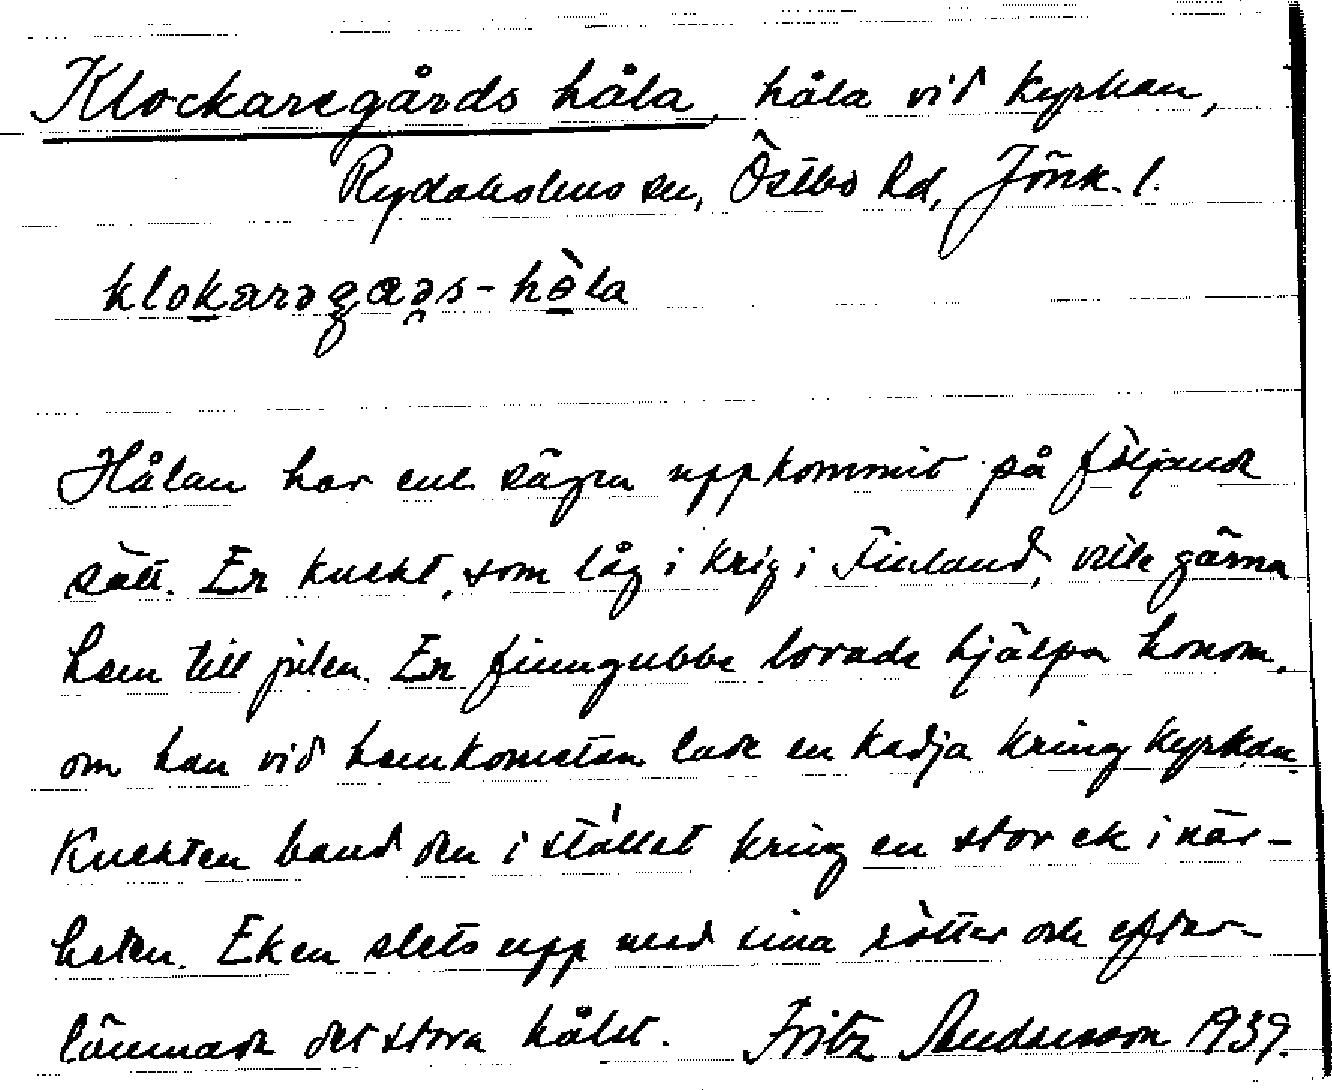 Klockaregårds håla, håla vid kyrkan,
Rydaholms sn, Östbo hd, Jönk. l.
klokarəgaəs-hòla
Hålan har enl. sägen uppkommit på följande
sätt. En knekt, som låg i krig i Finland, ville gärna
hem till julen. En finngubbe lovade hjälpa honom,
om han vid hemkomsten lade en kedja kring kyrkan.
Knekten band den i stället kring en stor ek i när-
heten. Eken slets upp med sina rötter och efter-
lämnade det stora hålet. Fritz Andersson 1939.